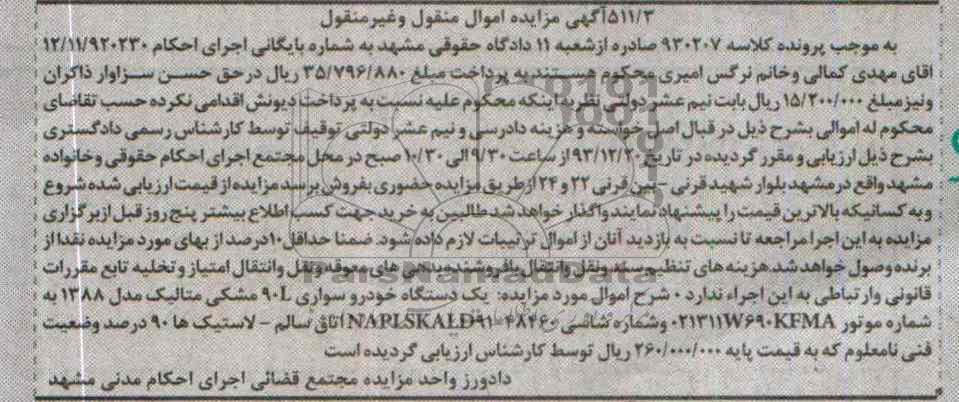 ۵۱۱/۳آگهی مزایده اموال منقول وغیرمنقول
به موجب پرونده کلاسه ۹۳۰۲۰۷ صادره ازشعبه ۱۱ دادگاه حقوقی مشهد به شماره بایگانی اجرای احکام ۱۲/۱۱/۹۲۰۲۳۰
اقای مهدی کمالی وخانم نرگس امیری محکوم هستند به پرداخت مبلغ ۳۵/۷۹۶/۸۸۰ ریال درحق حسن سزاوار ذاکران
ونیز مبلغ ۱۵/۲۰۰/۰۰۰ ریال بابت نیم عشر دولتی نظر به اینکه محکوم علیه نسبت به پرداخت دیونش اقدامی نکرده حسب تقاضای
محکوم له اموالی بشرح ذیل در قبال اصل خواسته و هزینه دادرسی و نیم عشر دولتی توقیف توسط کارشناس رسمی دادگستری
بشرح ذیل ارزیابی و مقرر گردیده در تاریخ ۹۳/۱۲/۲۰ از ساعت ۹/۳۰ الی ۱۰/۳۰ صبح در محل مجتمع اجرای احکام حقوقی وخانواده
مشهد واقع در مشهد بلوار شهید قرنی - بین قرنی ۲۲ و ۲۴ ازطریق مزایده حضوری بفروش برسد مزایده از قیمت ارزیابی شده شروع
وبه کسانیکه بالاترین قیمت را پیشنهاد نمایند واگذار خواهد شد طالبین به خرید جهت کسب اطلاع بیشتر پنج روز قبل از برگزاری
مزایده به این اجرا مراجعه تا نسبت به بازدید آنان از اموال ترتیبات لازم داده شود. ضمنا حداقل ۱۰درصد از بهای مورد مزایده نقدا از
برنده وصول خواهد شد هزینه های تنظیم سند ونقل وانتقال بافروشنده بدهی های معوقه ونقل وانتقال امتیاز و تخلیه تابع مقررات
قانونی وارتباطی به این اجراء ندارد ۰ شرح اموال مورد مزایده: یک دستگاه خودرو سواری ۹۰L مشکی متالیک مدل ۱۳۸۸ به
شماره موتور ۰۲۱۳۱۱W۶۹۰KFMA وشماره شاسی اتاق سالم - لاستیک ها ۹۰ درصد وضعیت
فنی نامعلوم که به قیمت پایه ۲۶۰/۰۰۰/۰۰۰ ریال توسط کارشناس ارزیابی گردیده است
دادورز واحد مزایده مجتمع قضائی اجرای احکام مدنی مشهد
ParsNamadData